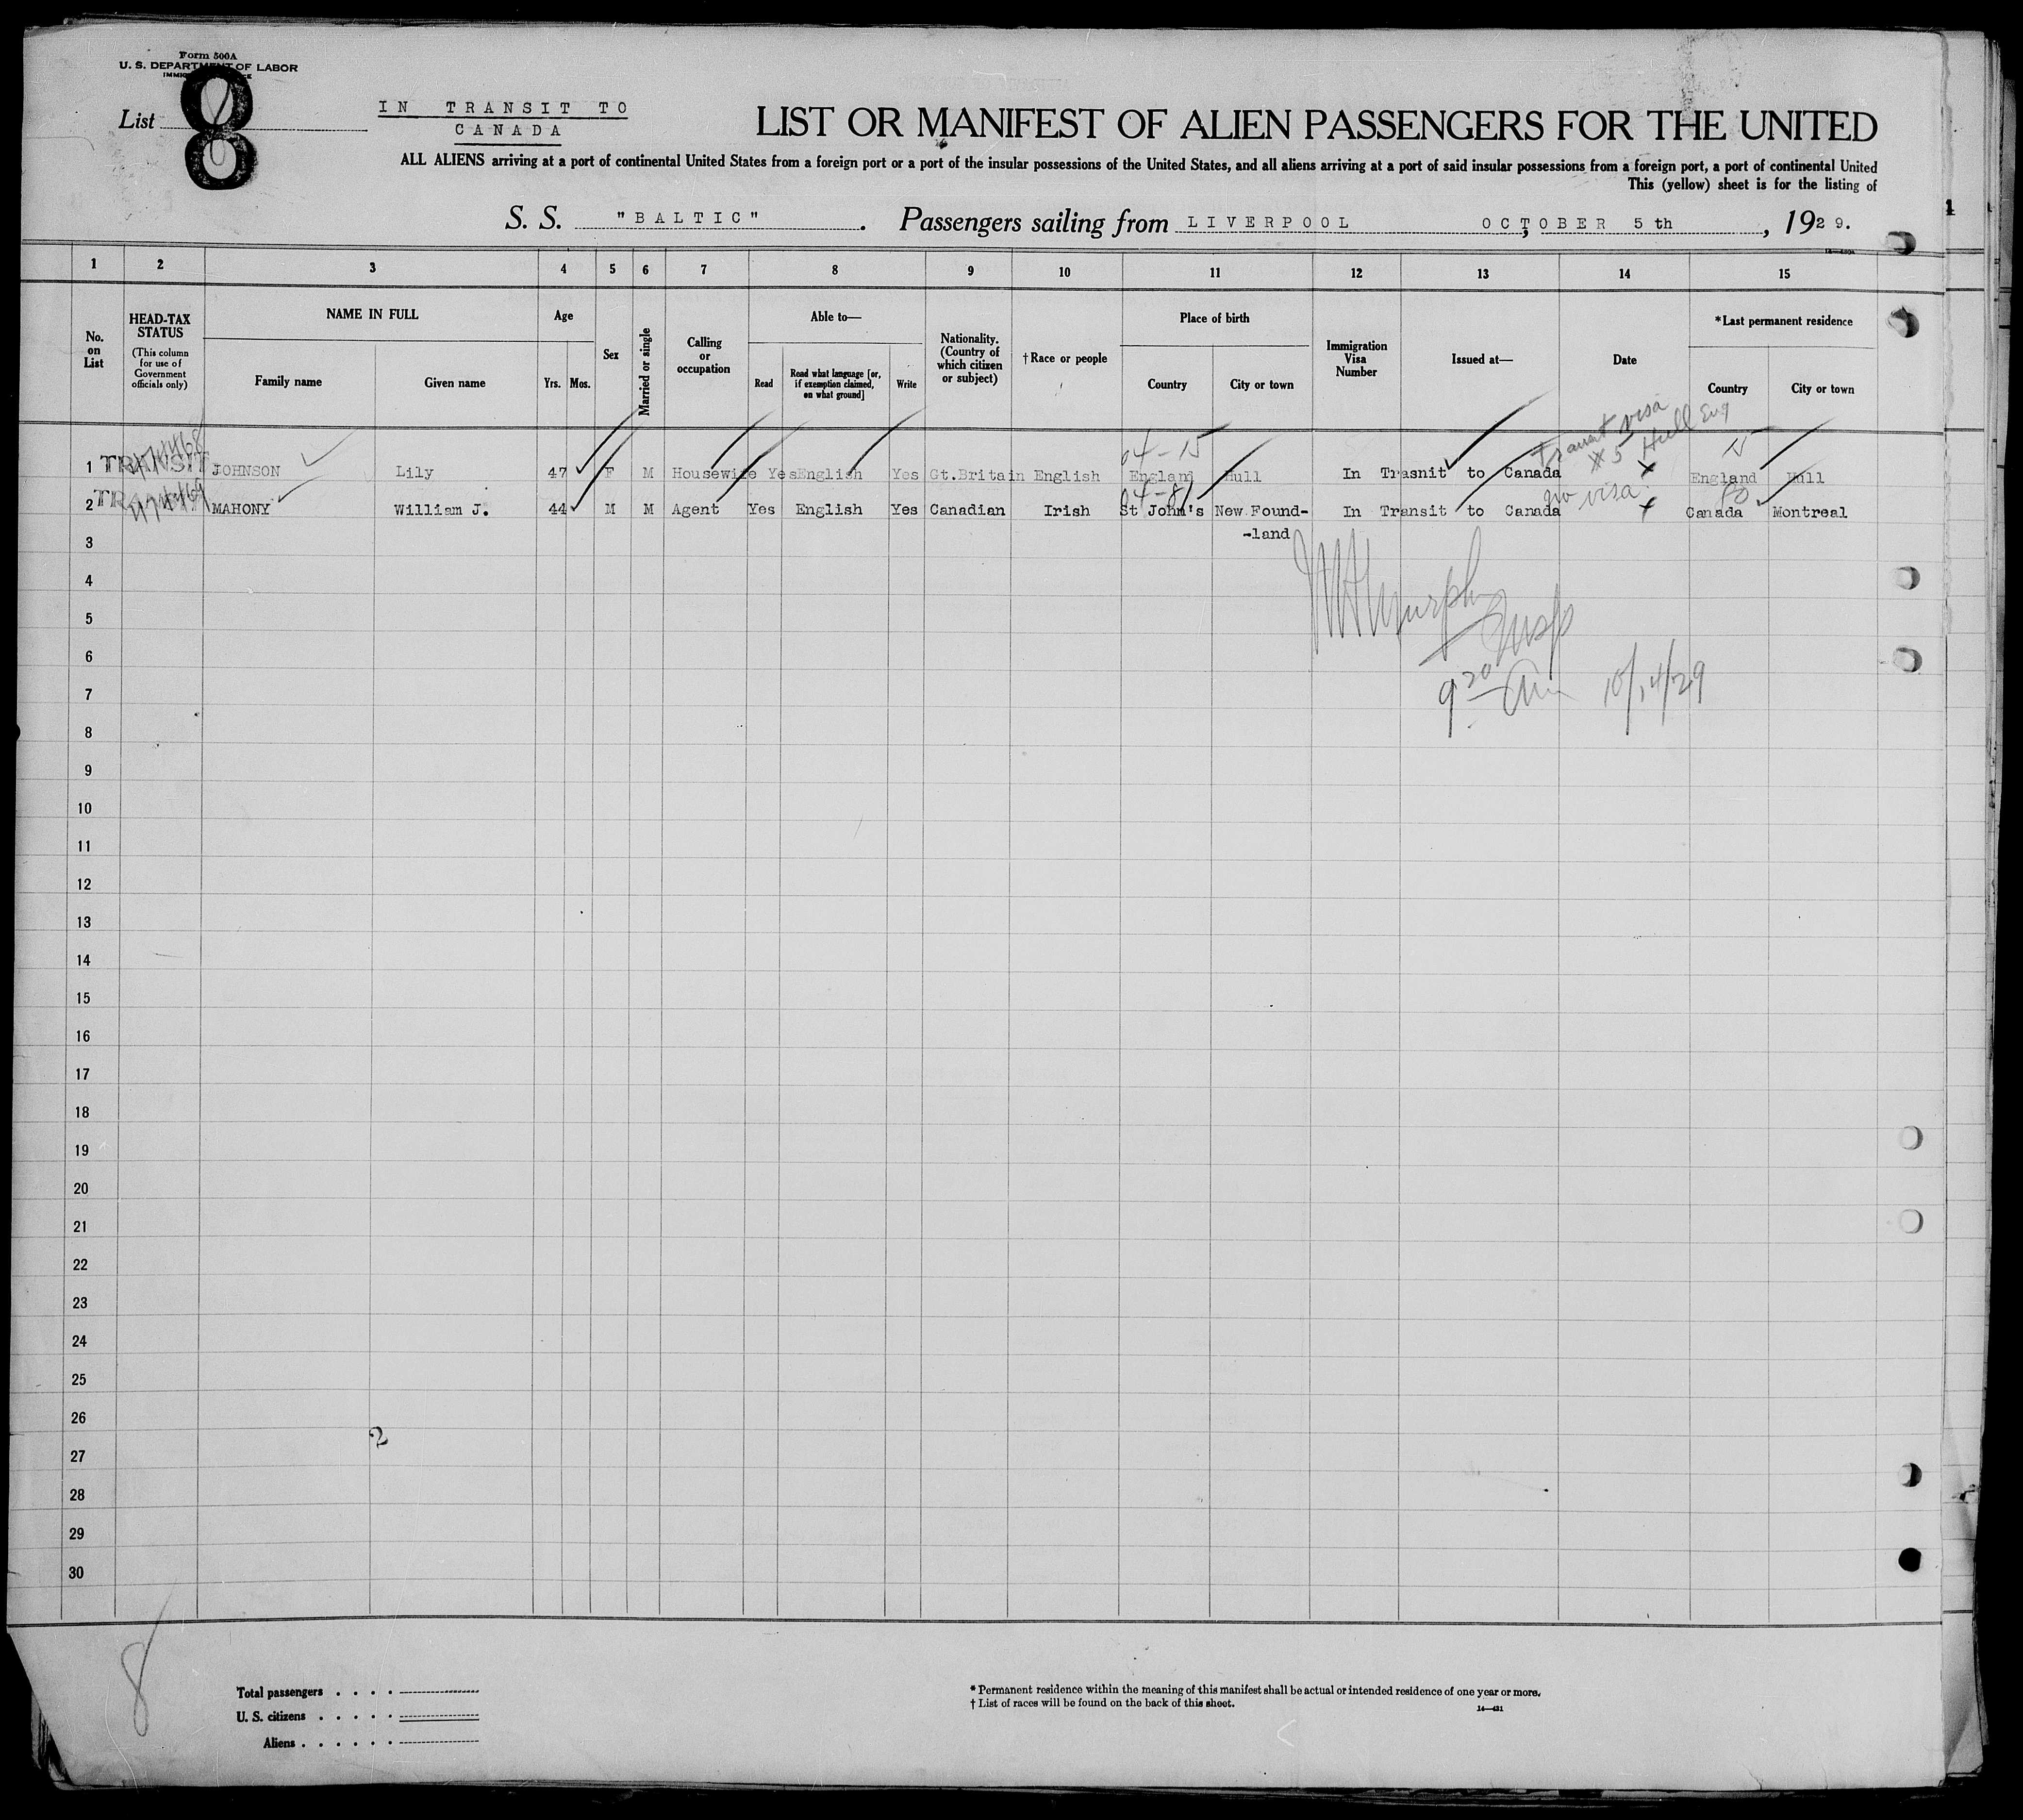 Form 500A
U. S. DEPARTMENT OF LABOR
List 8
IN TRANSIT TO
CANADA
LIST OR MANIFEST OF ALIEN PASSENGERS FOR THE UNITED
ALL ALIENS arriving at a port of continental United States from a foreign port or a port of the insular possessions of the United States, and all aliens arriving at a port of said insular possessions from a foreign port, a port of continental United
This (yellow) sheet is for the listing of
S. S. "BALTIC". Passengers sailing from LIVERPOOL OCTOBER 5th, 1929.
1 2 3 4 5 6 7 8 9 10 11 12 13 14 15
No. on List
HEAD-TAX STATUS
(This column for use of Government officials only)
NAME IN FULL
Family name Given name
Age
Yrs. Mos.
Sex
Married or single
Calling or occupation
Able to—
Read
Read what language [or, if exemption claimed, on what ground]
Write
Nationality. (Country of which citizen or subject)
†Race or people
Place of birth
Country City or town
Immigration Visa Number
Issued at—
Date
*Last permanent residence
Country City or town
Transit visa
#5 Hull Eng
04-15 15
1 TRANSIT JOHNSON Lily 47 F M Housewife Yes English Yes Gt.Britain English England Hull In Trasnit to Canada x England Hull
04-81 no visa 80
2 MAHONY William J. 44 M M Agent Yes English Yes Canadian Irish St John's New Found- In Transit to Canada x Canada Montreal
3 -land
4
5
Murphy
Insp
6
7 9 20 Am 10/14/29
8
9
10
11
12
13
14
15
16
17
18
19
20
21
22
23
24
25
26
2
27
28
29
30
8
Total passengers . . . .
U. S. citizens . . . . .
Aliens . . . . . .
* Permanent residence within the meaning of this manifest shall be actual or intended residence of one year or more.
† List of races will be found on the back of this sheet.
14—431